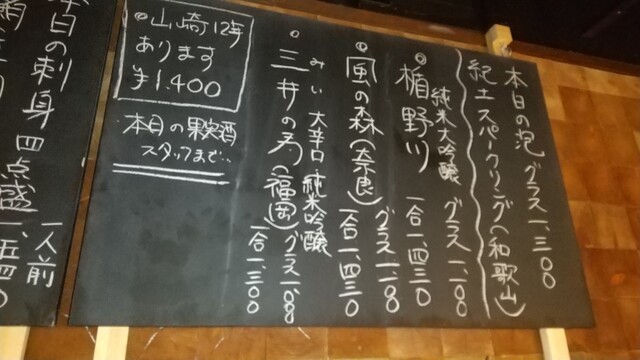 本日の泡 グラス一、三〇〇
紀土スパークリング(和歌山)
純米大吟醸 グラス一、一〇〇
楯野川 一合一、四三〇
グラス一、一〇〇
風の森(奈良) 一合一、四三〇
みい 大辛口 純米吟醸 グラス一、〇〇
三井の寿(福岡) 一合一、三〇〇
山崎12年
あります
¥1,400
本日の果実酒
スタッフまで…
本日の刺身四点盛 一人前